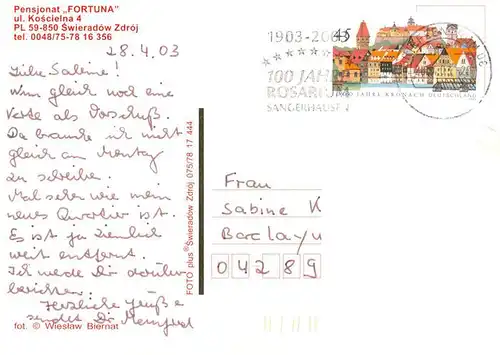 Pensjonat „FORTUNA"
ul. Kościelna 4
PL 59-850 Świeradów Zdrój
tel. 0048/75-78 16 356
28.4.03
Liebe Sabine!
Nun gleich noch eine
Karte als Vorschuß.
Da brauche ich nicht
gleich am Montag
zu schreiben.
Mal sehen wie mein
neues Quartier ist.
Es ist ja ziemlich
weit entfernt.
Ich werde Dir darüber
berichten.
Herzliche Grüße
sendet Dir Manfred
fot. © Wiesław Biernat
FOTO plus® Świeradów Zdrój 075/78 17 444
1903-20
100 JAH
ROSARIU
SANGERHAUSEN
45
1000 JAHRE KRONACH DEUTSCHLAND
Frau
Sabine K
Barclayu
04289